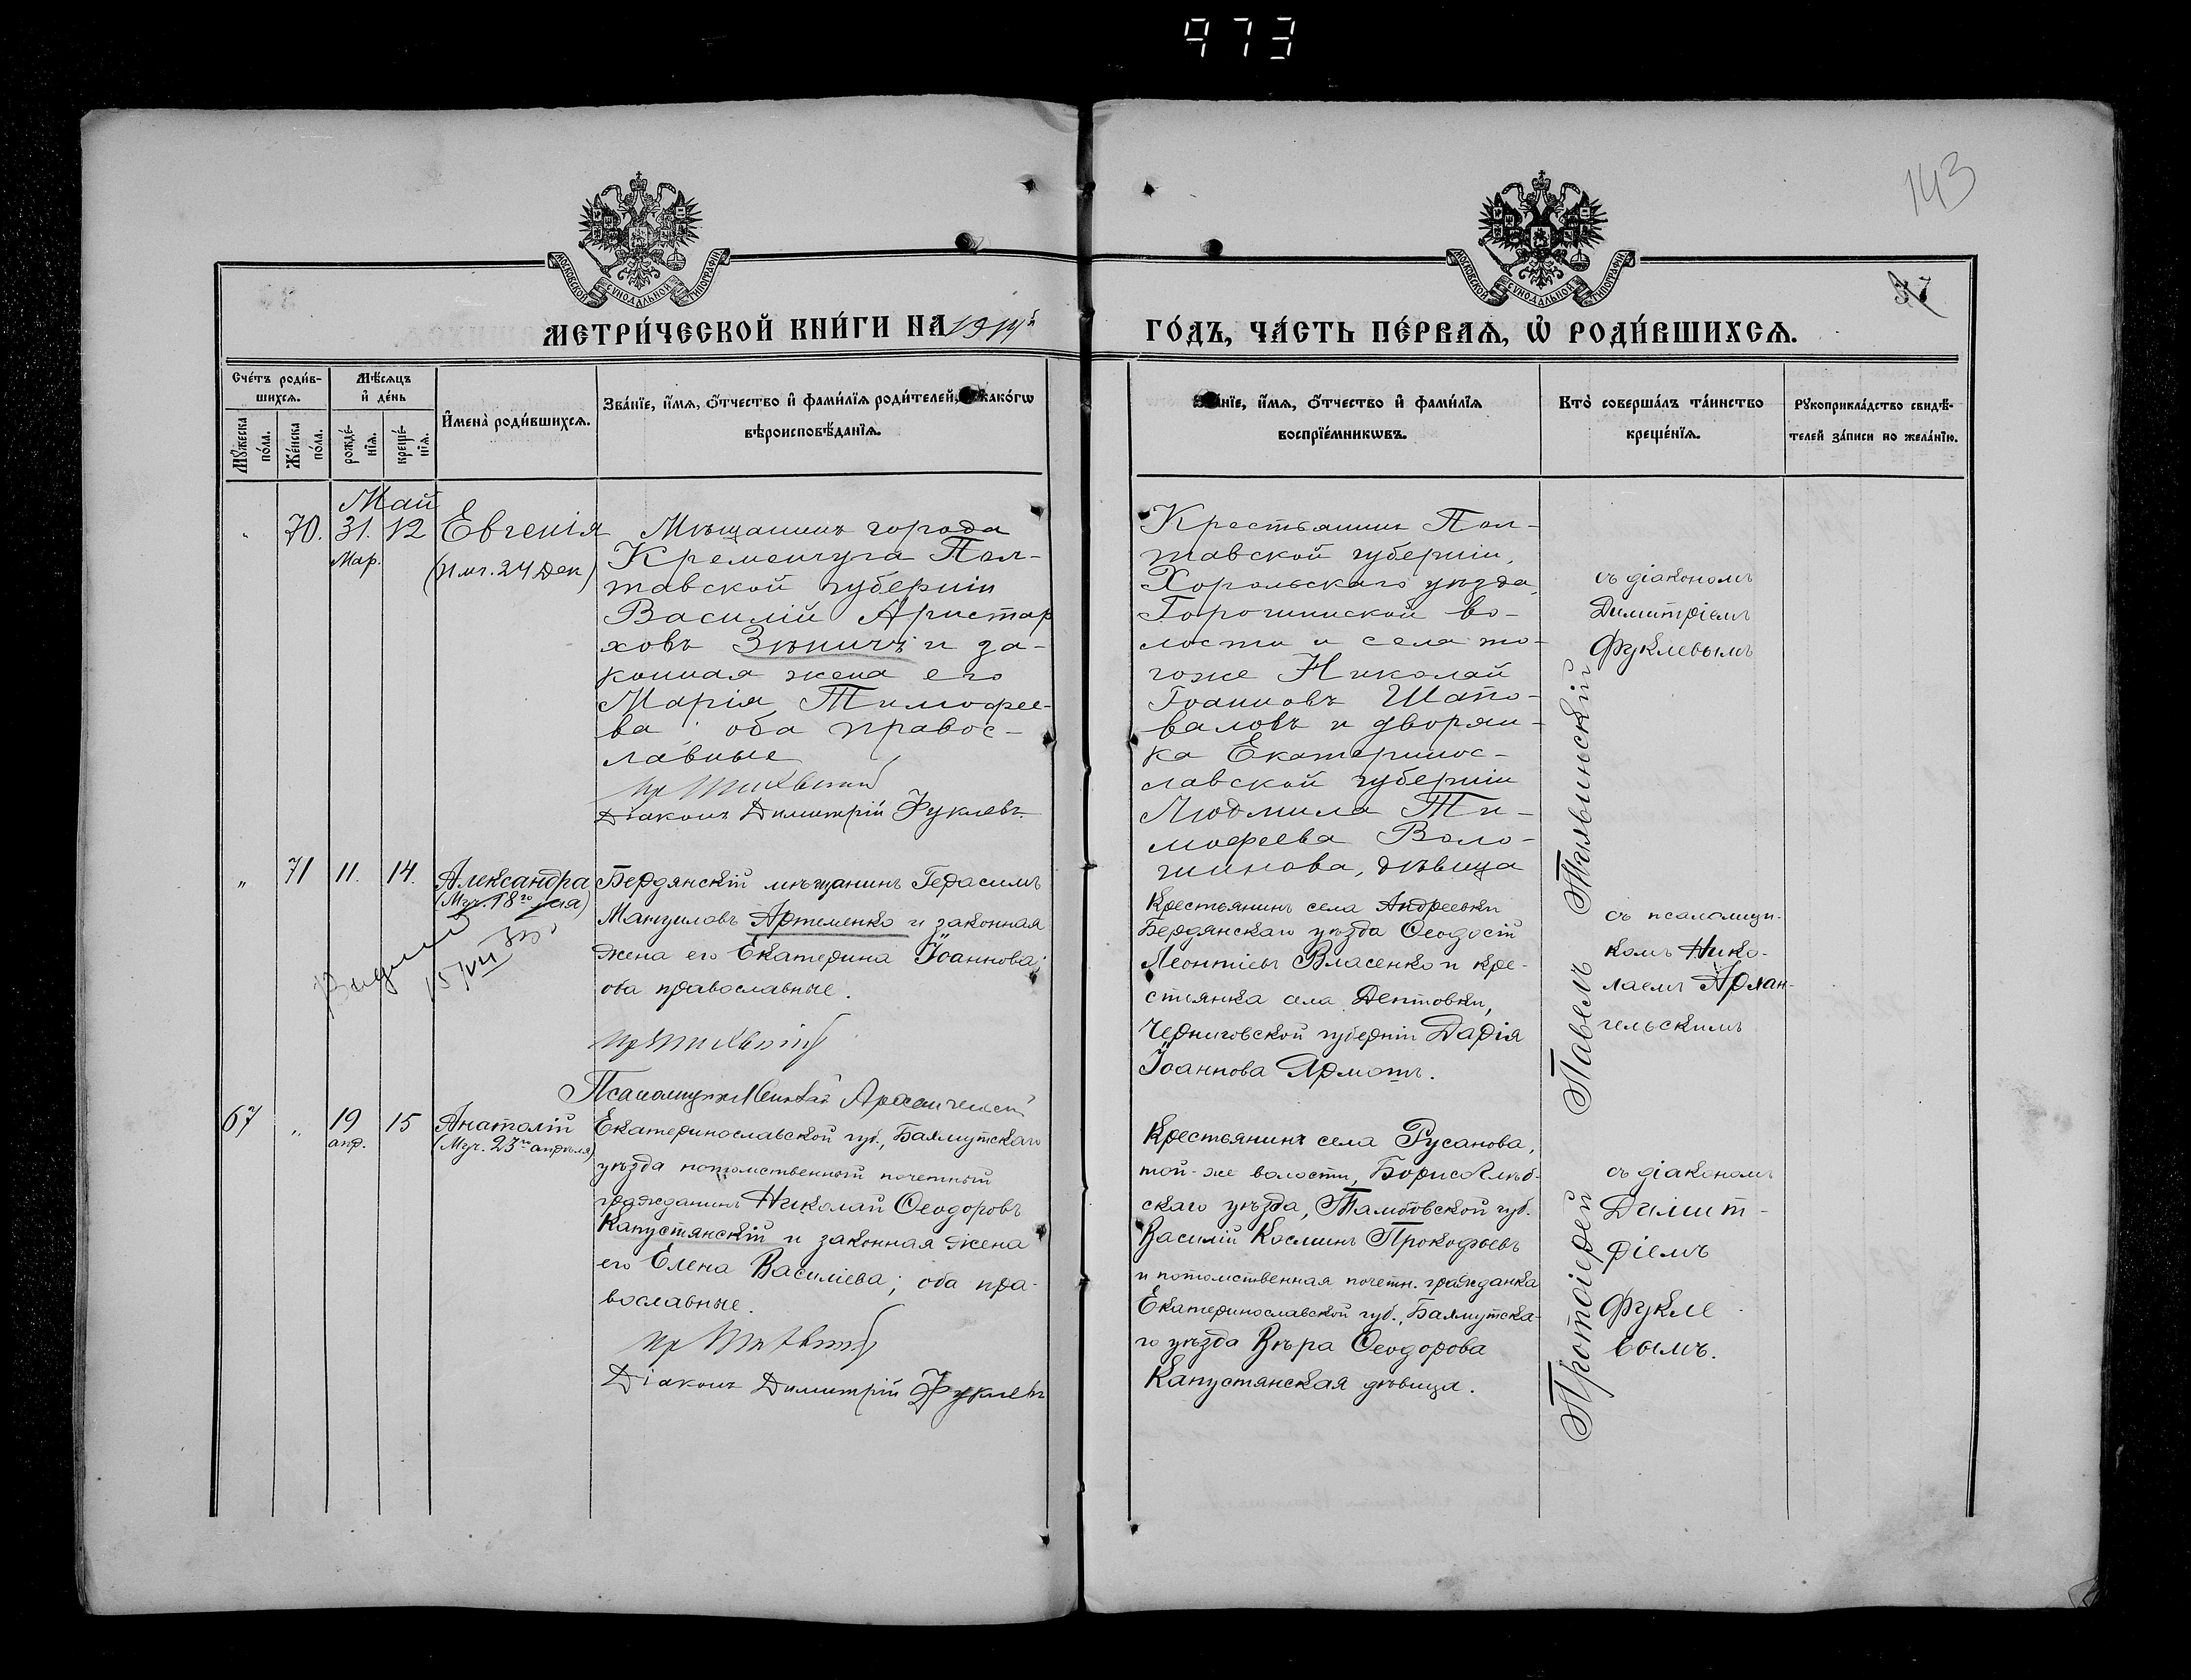 973
143
37
МОСКОВСКОЙ СѴНОДАЛЬНОЙ ТИПОГРАФІИ
МОСКОВСКОЙ СѴНОДАЛЬНОЙ ТИПОГРАФІИ
МЕТРИ́ЧЕСКОЙ КНИ́ГИ НА 1914й
ГО́ДЪ, ЧА́СТЬ ПЕ́РВАѦ, Ѽ РОДИ́ВШИХСѦ.
Сче́тъ роди́в-
шихсѧ.
Мꙋ́жеска по́ла.
Же́нска по́ла.
Мѣ́сѧцъ
и҆ де́нь
рожде́-
нїѧ.
креще́-
нїѧ.
И҆мена̀ роди́вшихсѧ.
Зва́нїе, и҆́мѧ, ѻ҆́тчество и҆ фами́лїѧ роди́телей, како́гѡ
вѣроисповѣ́данїѧ.
Зва́нїе, и҆́мѧ, ѻ҆́тчество и҆ фами́лїѧ
воспрїе́мникѡвъ.
Кто̀ соверша́лъ та́инство
креще́нїѧ.
Рꙋкоприкла́дство свидѣ́-
телей за́писи по жела́нїю.
Май
70. 31. 12 Евгенія
Мар. (Пмч. 24 Дек)
Мѣщанинъ города
Кременчуга Пол-
тавской губерніи
Василій Аристар
ховъ Зѣничъ и за-
конная жена его
Марія Тимофее-
ва оба правос-
лавные
Діаконъ Димитрій Фуклевъ
Крестьянинъ Пол-
тавской губерніи,
Хорольскаго уѣзда,
Горошинской во-
лости и села то-
гоже Николай
Іоанновъ Шапо-
валовъ и дворян-
ка Екатеринос-
лавской губерніи
Людмила Ти-
мофеева Воло-
шинова, дѣвица
съ діакономъ
Димитріемъ
Фуклевымъ
Протоіерей Павелъ Тихвинскій
„ 71 11. 14. Александра
(Мч. 18го мая)
15/VII
Бердянскій мѣщанинъ Герасимъ
Мануиловъ Артеменко и законная
жена его Екатерина Іоаннова;
оба православные.
Крестьянинъ села Андреевки
Бердянскаго уѣзда Ѳеодосій
Леонтіевъ Власенко и кре-
стьянка села Дептовки,
Черниговской губерніи Дарія
Іоаннова Ярмошъ.
съ псаломщи-
комъ Нико-
лаемъ Архан-
гельскимъ
67 „ 19 15 Анатолій
апр. (Мч. 23го апрѣля)
Екатеринославской губ., Бахмутскаго
уѣзда потомственный почетный
гражданинъ Николай Ѳеодоровъ
Капустянскій и законная жена
его Елена Василіева; оба пра-
вославные.
Діаконъ Димитрій Фуклевъ
Крестьянинъ села Русанова,
той-же волости, Борисоглѣб-
скаго уѣзда, Тамбовской губ.
Василій Косминъ Прокофьевъ
и потомственная почетн. гражданка
Екатеринославской губ., Бахмутска-
го уѣзда Вѣра Ѳеодорова
Капустянская дѣвица.
съ діакономъ
Димит-
ріемъ
Фукле
вымъ.